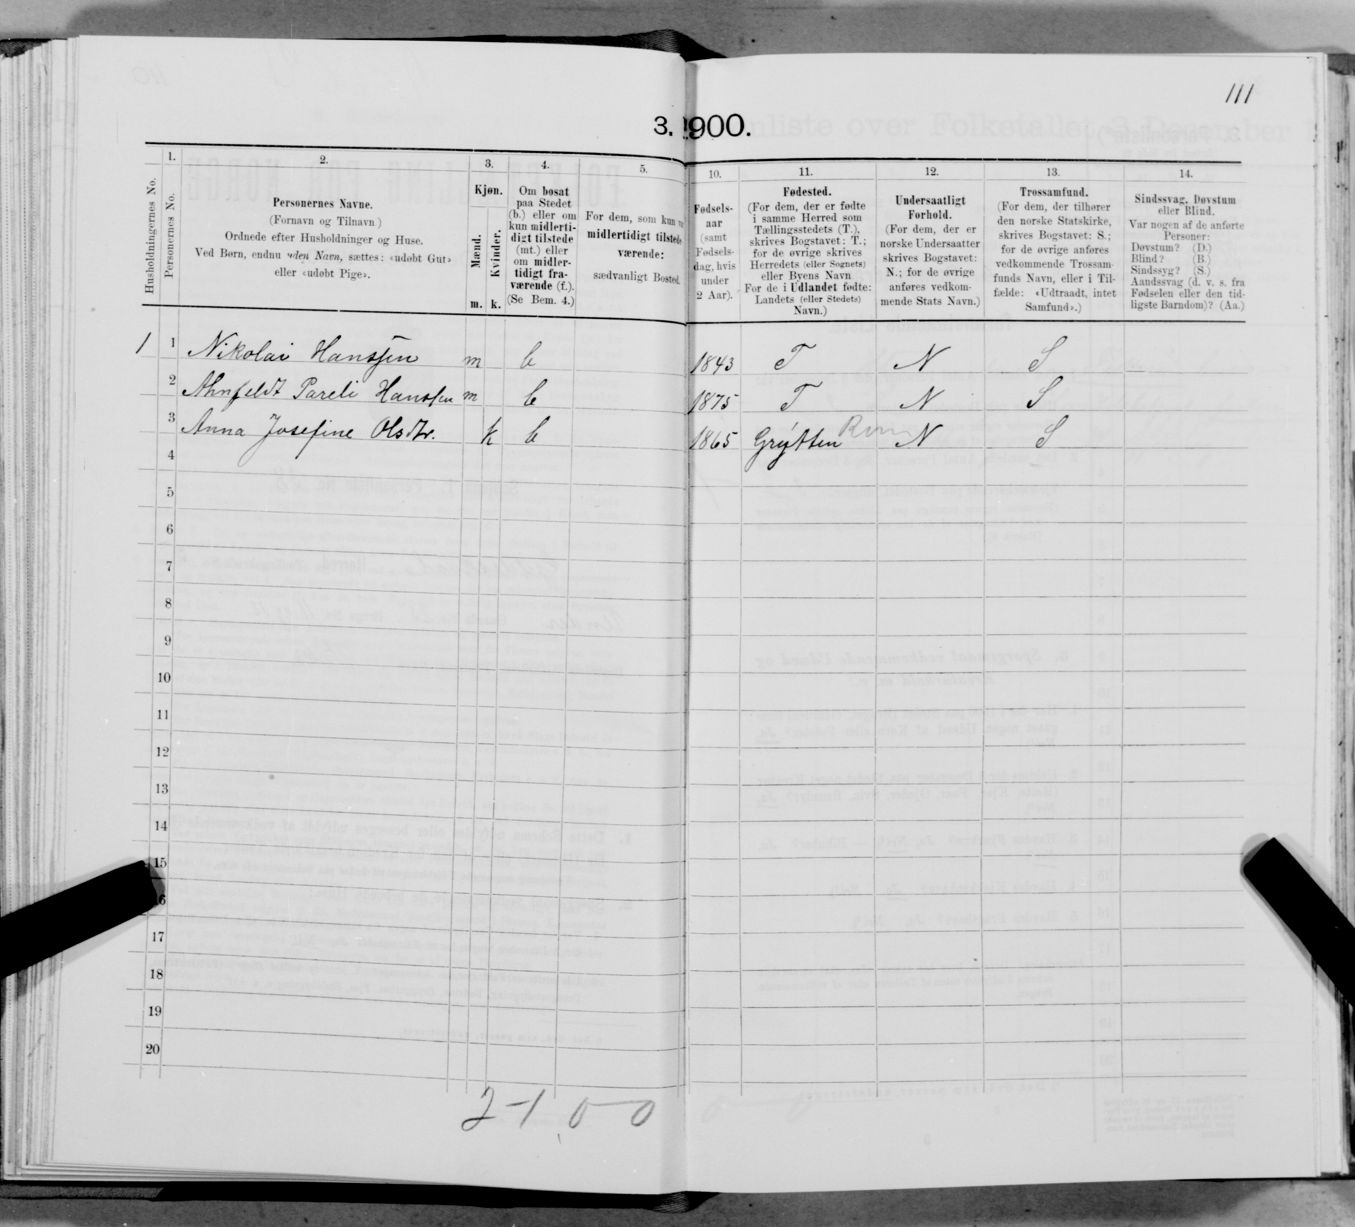 111
3. 1900.
1.
2.
3.
4.
5.
10.
11.
12.
13.
14.
Husholdningernes No.
Personernes No.
Personernes Navne.
(Fornavn og Tilnavn)
Ordnede efter Husholdninger og Huse.
Ved Børn, endnu uden Navn, sættes: «udøbt Gut»
eller «udøbt Pige».
Kjøn.
Mænd.
Kvinder.
m. k.
Om bosat
paa Stedet
(b.) eller om
kun midlerti-
digt tilstede
(mt.) eller
om midler-
tidigt fra-
værende (f.).
(Se Bem. 4.)
For dem, som kun
midlertidigt tilstede
værende:
sædvanligt Bosted.
Fødsels-
aar
(samt
Fødsels-
dag, hvis
under
2 Aar).
Fødested.
(For dem, der er fødte
i samme Herred som
Tællingsstedets (T.),
skrives Bogstavet: T.;
for de øvrige skrives
Herredets (eller Sognets)
eller Byens Navn
For de i Udlandet fødte:
Landets (eller Stedets)
Navn.)
Undersaatligt
Forhold.
(For dem, der er
norske Undersaatter
skrives Bogstavet:
N.; for de øvrige
anføres vedkom-
mende Stats Navn.)
Trossamfund.
(For dem, der tilhører
den norske Statskirke,
skrives Bogstavet: S.;
for de øvrige anføres
vedkommende Trossam-
funds Navn, eller i Til-
fælde: «Udtraadt, intet
Samfund».)
Sindssvag, Døvstum
eller Blind.
Var nogen af de anførte
Personer:
Døvstum? (D.)
Blind? (B.)
Sindssyg? (S.)
Aandssvag (d. v. s. fra
Fødselen eller den tid-
ligste Barndom)? (Aa.)
1 1 Nikolai Hanssen m b 1843 T N S
2 Ahnfeldt Pareli Hanssen m b 1875 T N S
3 Anna Josefine Olsdtr. k b 1865 Grytten N S
4
5
6
7
8
9
10
11
12
13
14
15
16
17
18
19
20
2-1 0-0 0-0